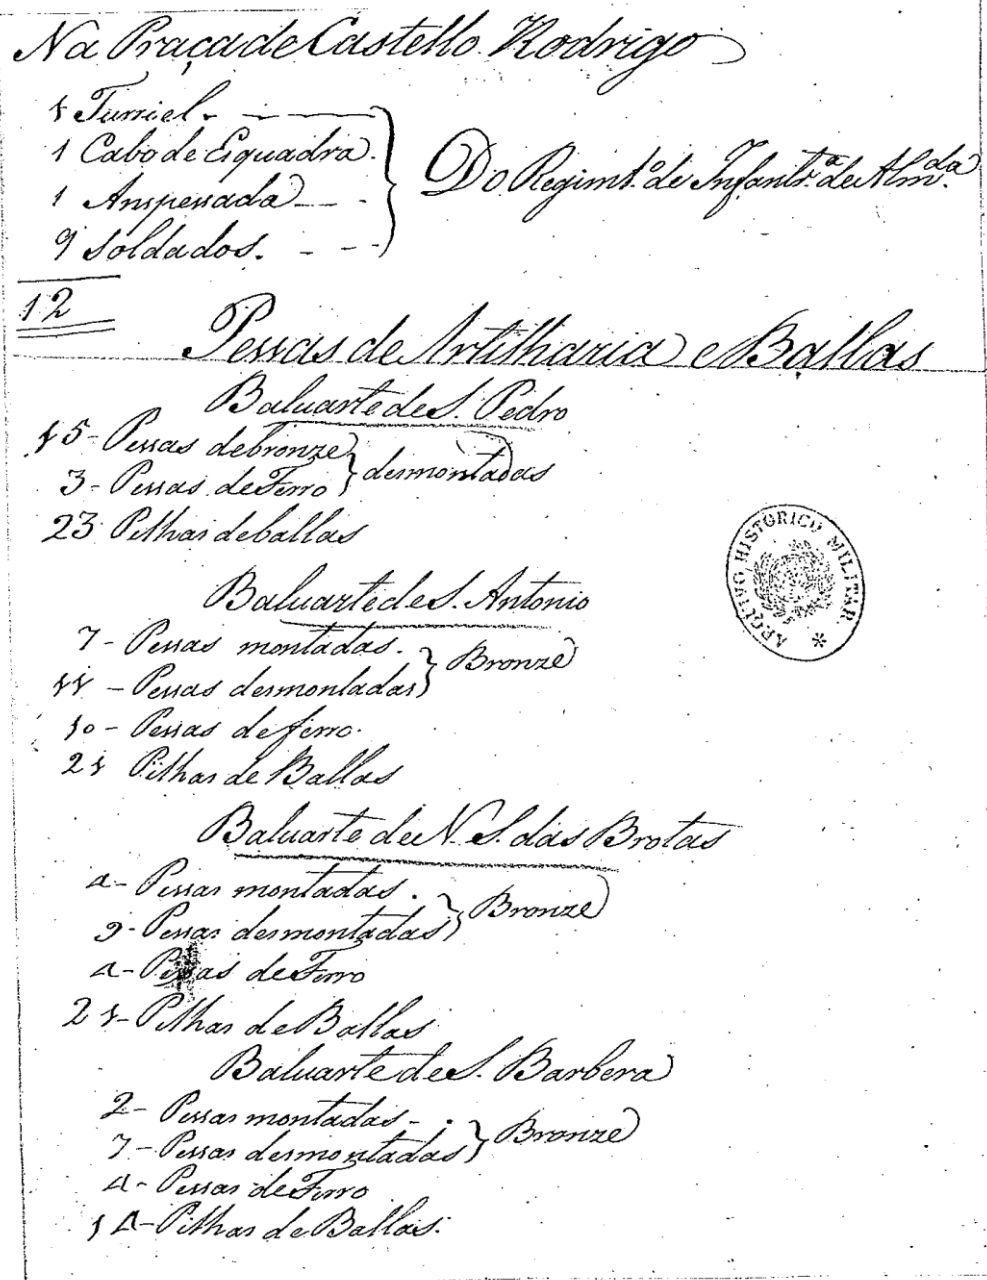 Na Praça de Castello Rodrigo
1 Furriel
1 Cabo de Esquadra
1 Anspessada
9 Soldados
Do Regimt.º de Infantr.ª de Alm.da
12
Pessas de Artilharia e Ballas
Baluarte de S. Pedro
15 - Pessas de bronze
3 - Pessas de Ferro
desmontadas
23 Pilhas de ballas
Baluarte de S. Antonio
7 - Pessas montadas.
11 - Pessas desmontadas
Bronze
10 - Pessas de ferro.
21 Pilhas de Ballas
Baluarte de N. S. das Brotas
4 - Pessas montadas.
9 - Pessas desmontadas
Bronze
4 - Pessas de Ferro
21 - Pilhas de Ballas
Baluarte de S. Barbera
2 - Pessas montadas - .
7 - Pessas desmontadas
Bronze
4 - Pessas de Ferro
14 - Pilhas de Ballas.
ARQUIVO HISTORICO MILITAR. *